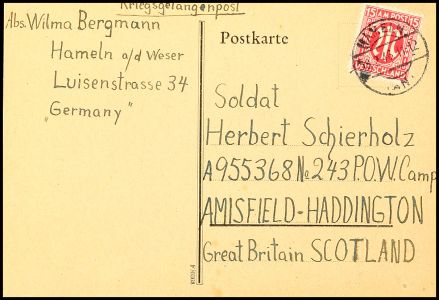 Kriegsgefangenpost
Abs. Wilma Bergmann
Hameln a/d Weser
Luisenstrasse 34
„Germany"
Postkarte
15 AM POST 15
DEUTSCHLAND
HAMELN
Soldat
Herbert Schierholz
A955368 No 243 P.O.W. Camp
AMISFIELD-HADDINGTON
Great Britain SCOTLAND